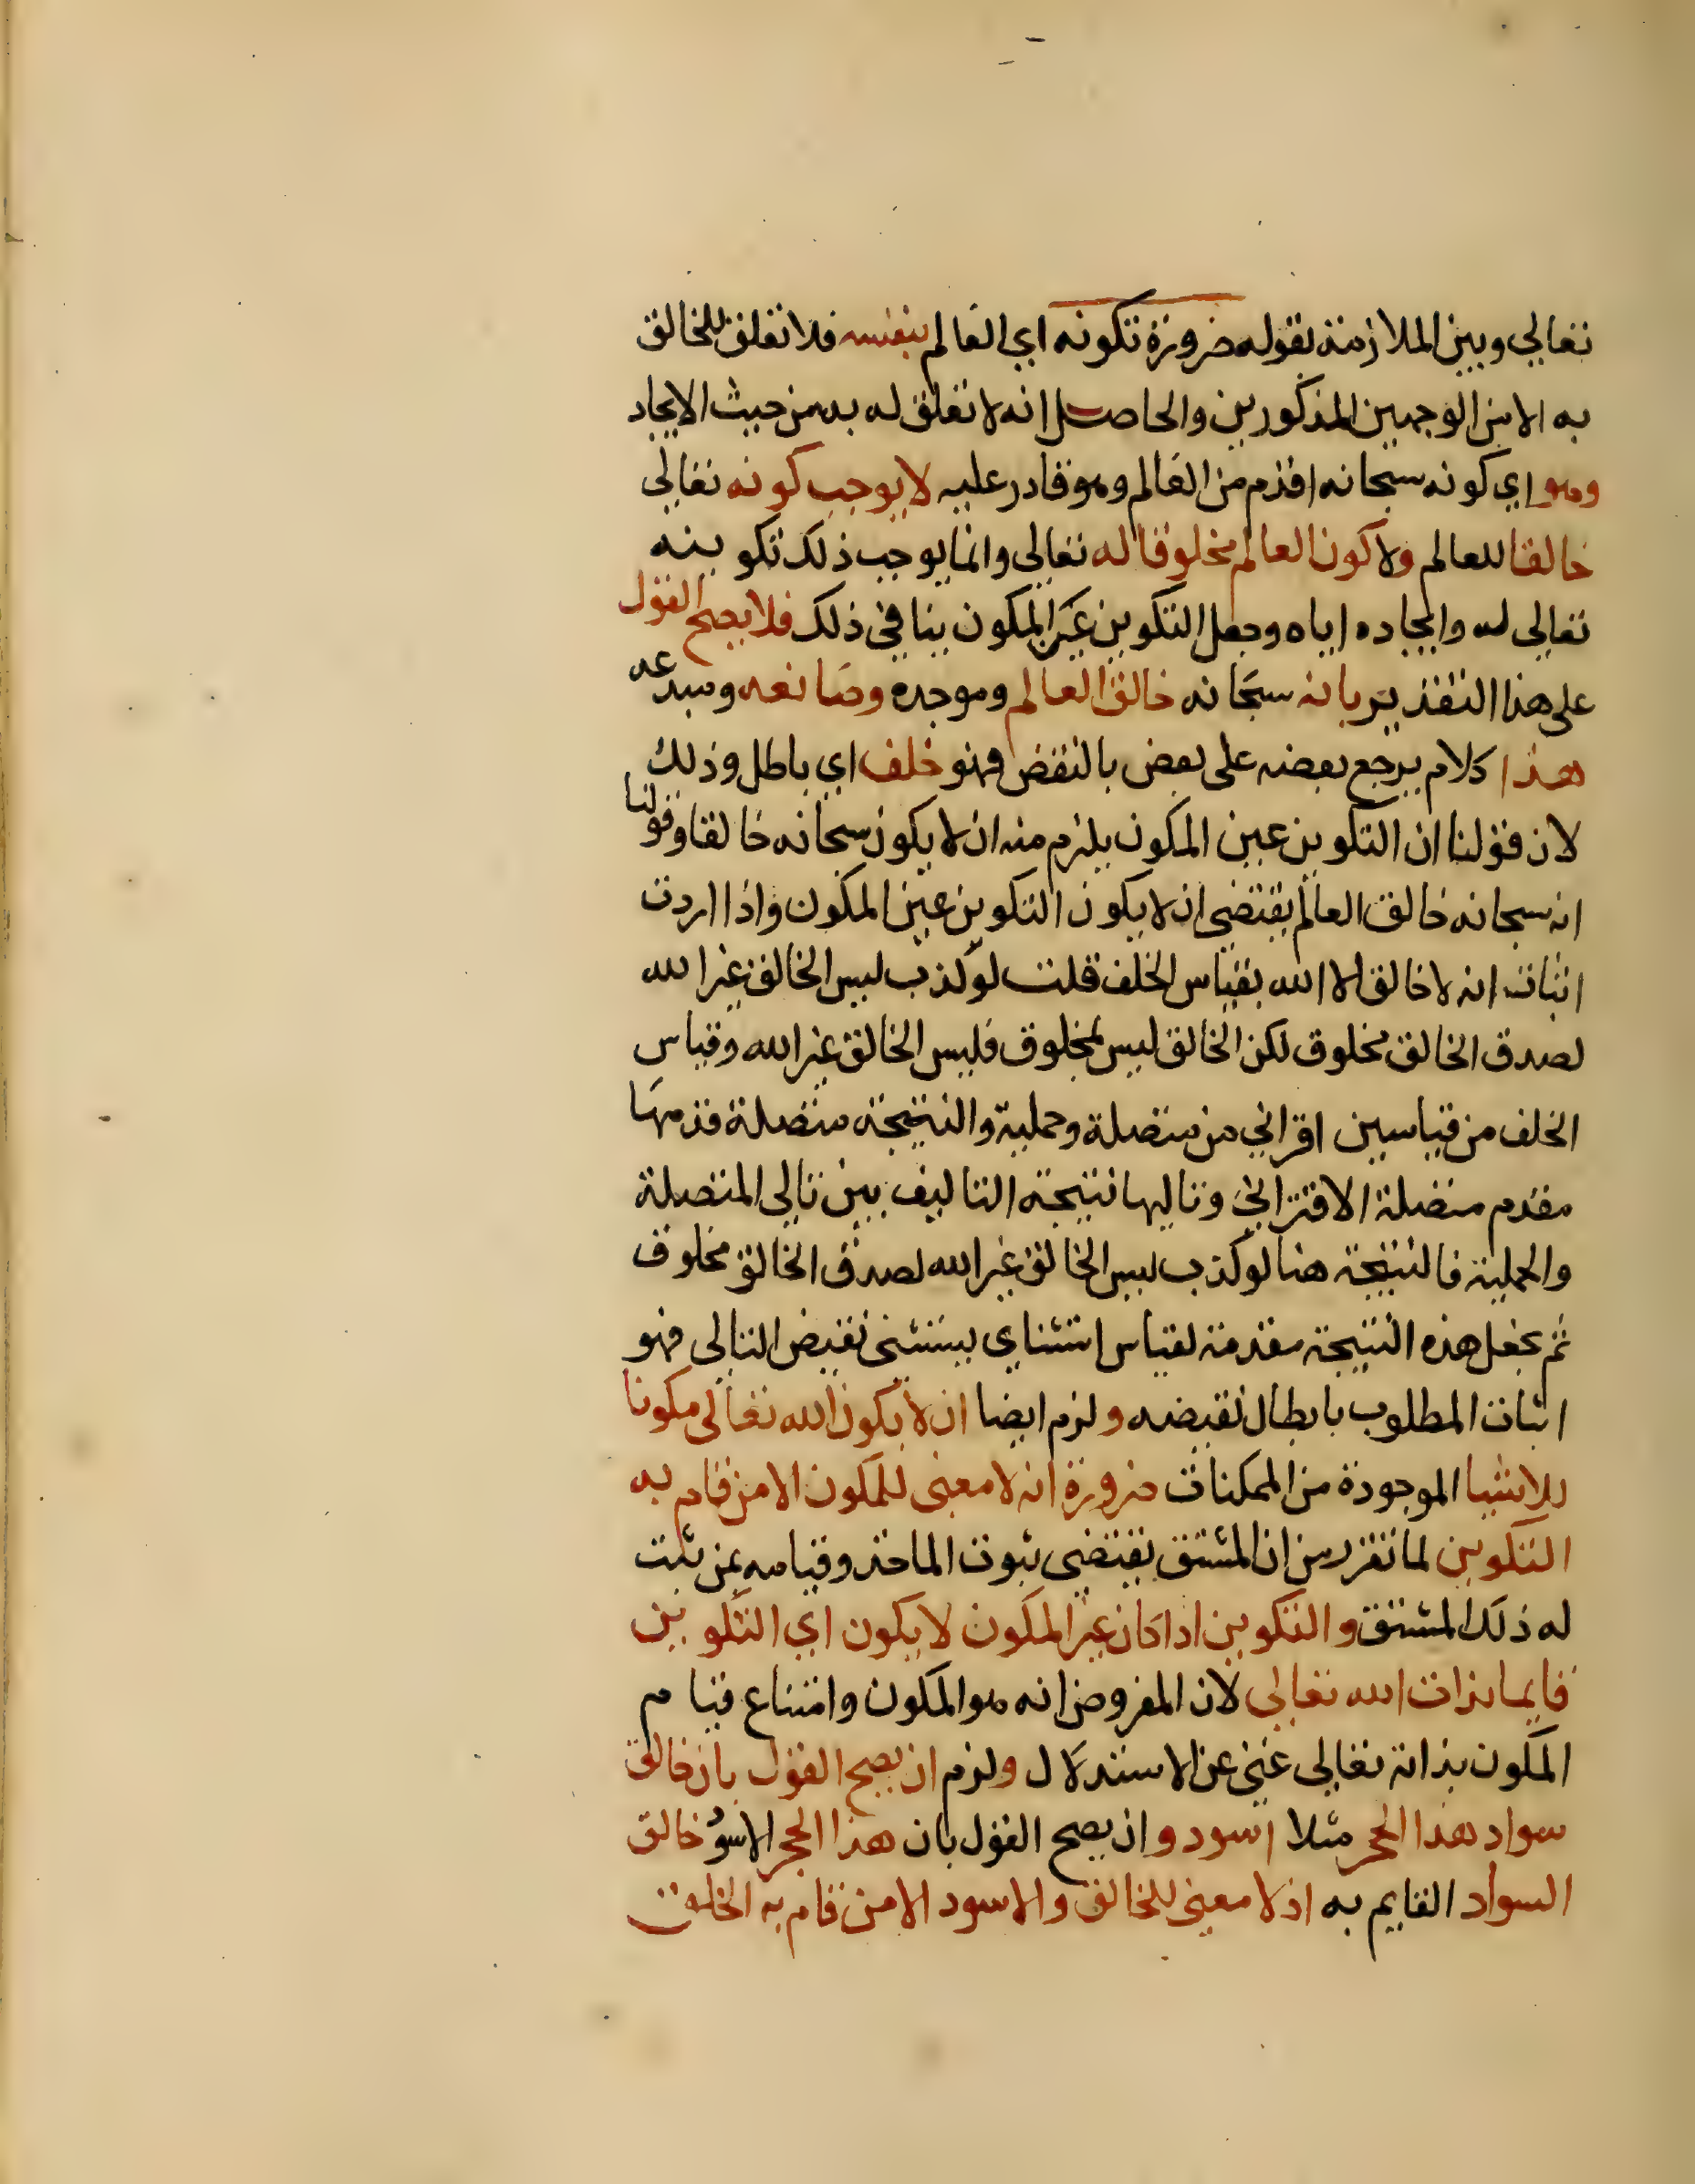 تعالي وبين الملازمة بقوله ضرورة تكونه اي العالم بنفسه فلا تعلق للخالق
به الا من الوجهين المذكورين والحاصل انه لا تعلق له به من حيث الايجاد
وهو اي كونه سبحانه اقدم من العالم وهو قادر عليه لا يوجب كونه تعالي
خالقا للعالم ولا كون العالم مخلوقا له تعالي وانما يوجب ذلك تكوينه
تعالي له وايجاده اياه وجعل التكوين عين المكون ينافي ذلك فلا يصح القول
علي هذا التقدير بانه سبحانه خالق العالم وموجده وصانعه ومبدعه
هذا كلام يرجع بعضه علي بعض بالنقض فهو خلف اي باطل وذلك
لان قولنا ان التكوين عين المكون يلزم منه ان لا يكون سبحانه خالقا وقولنا
انه سبحانه خالق العالم يقتضي ان لا يكون التكوين عين المكون واذا اردت
اثبات انه لا خالق الا الله بقياس الخلف قلت لو كذب ليس الخالق غير الله
لصدق الخالق مخلوق لكن الخالق ليس بمخلوق فليس الخالق غير الله وقياس
الخلف من قياسين اقراني من متصلة وحملية والنتيجة متصلة قدمها
مقدم متصلة الاقتراني وتاليها نتيجة التاليف بين تالي المتصلة
والحملية فالنتيجة هنا لو كذب ليس الخالق غير الله لصدق الخالق مخلوق
ثم تجعل هذه النتيجة مقدمة لقياس استثناي يستثني نقيض التالي فهو
اثبات المطلوب بابطال نقيضه ولزم ايضا ان لا يكون الله تعالي مكونا
للاشيا الموجودة من الممكنات ضرورة انه لا معني للمكون الا من قام به
التكوين لما تقرر من ان المشتق يقتضي ثبوت الماخذ وقيامه بمن ثبت
له ذلك المشتق والتكوين اذا كان عين المكون لا يكون اي التكوين
قايما بذات الله تعالي لان المفروض انه هو المكون وامتناع قيام
المكون بذاته تعالي غني عن الاستدلال ولزم ان يصح القول بان خالق
سواد هذا الحجر مثلا اسود وان يصح القول بان هذا الحجر الاسود خالق
السواد القايم به اذ لا معني للخالق والاسود الا من قام به الخلق